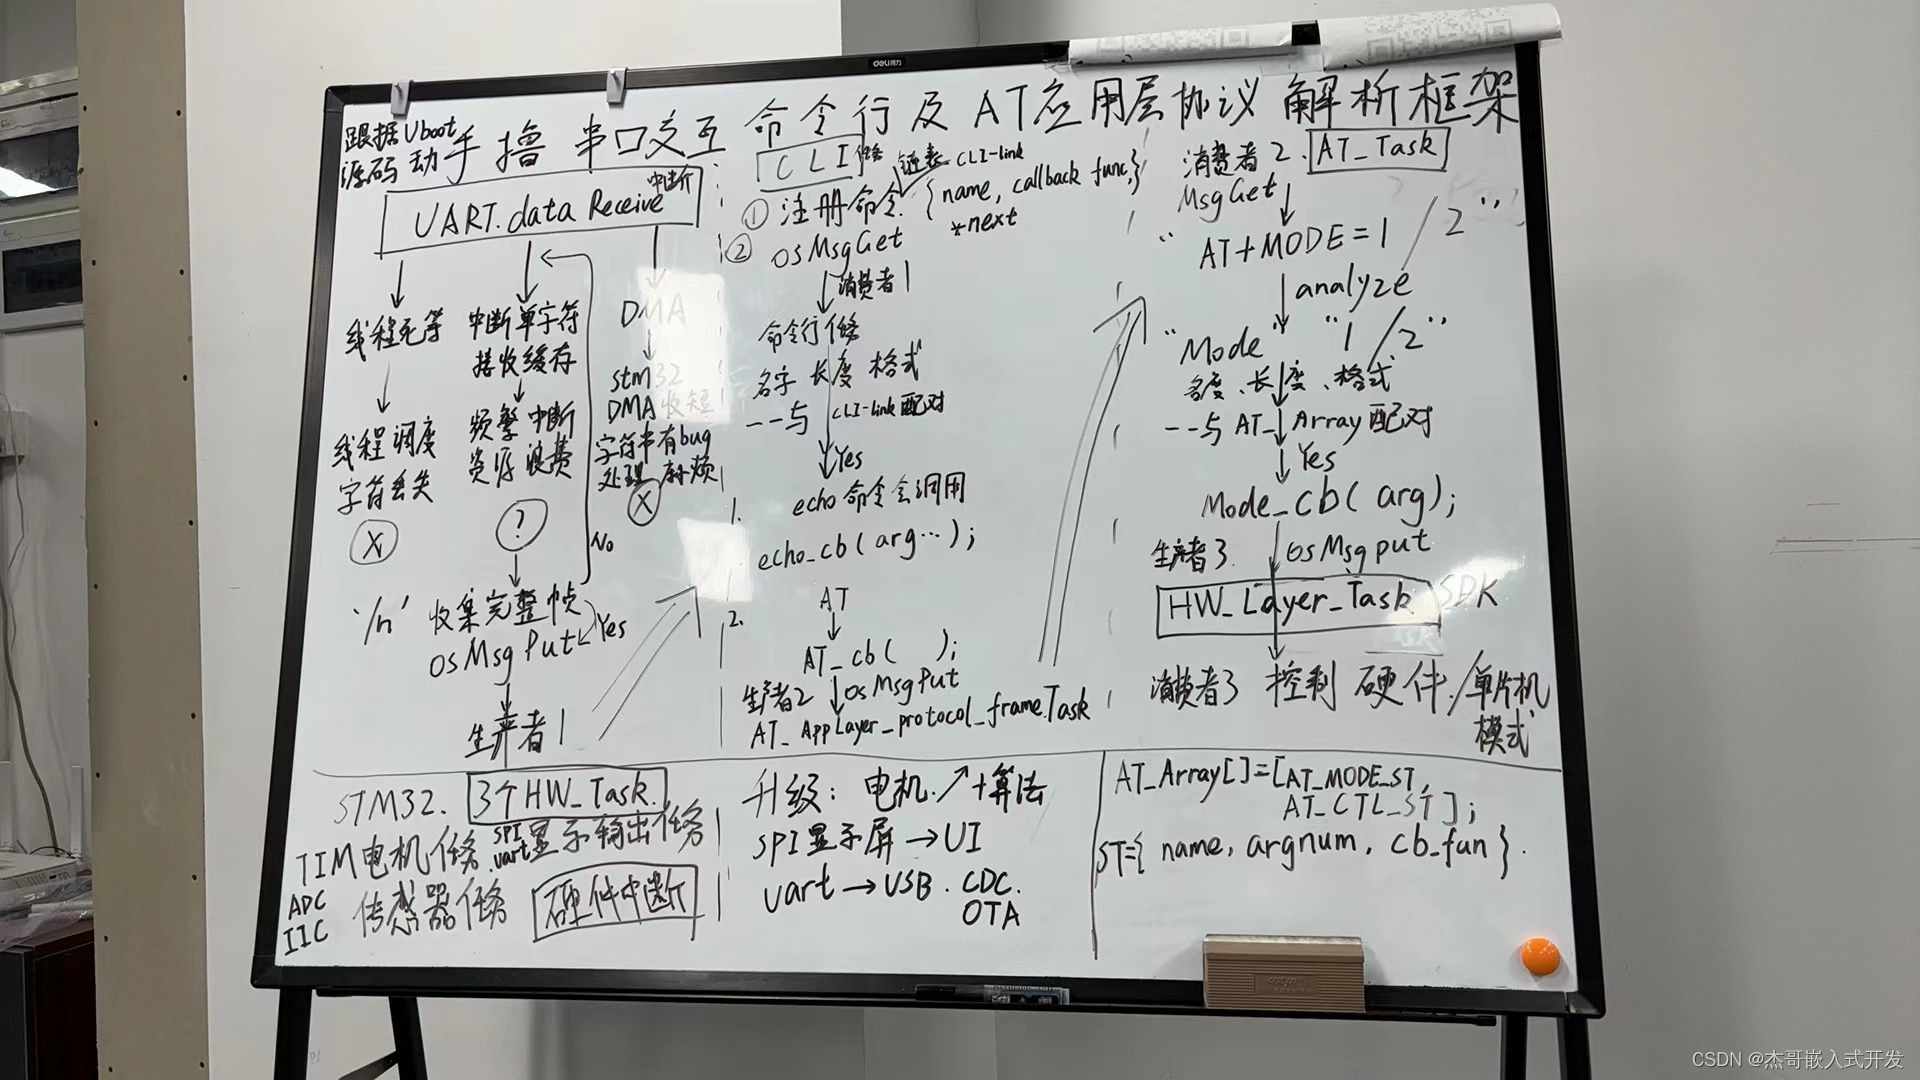 deli得力
跟据Uboot
源码动手撸 串口交互 命令行及AT应用层协议解析框架
UART.data Receive 中断
线程死等
线程调度
字符丢失
X
中断单字符
接收缓存
频繁中断
资源浪费
?
No
'/n' 收集完整帧
Yes
osMsgPut
生产者1
DMA
stm32
DMA收短
字符串有bug
处理麻烦
X
CLI 任务
链表 CLI-link
① 注册命令 {name, callback func,}
*next
② osMsgGet
消费者1
命令行任务
名字 长度 格式
--与 CLI-link配对
Yes
1. echo命令会调用
echo_cb(arg…);
2. AT
AT_cb( );
生产者2 osMsgPut
AT_AppLayer_protocol_frame.Task
消费者2. AT_Task
MsgGet
"AT+MODE=1/2"
analyze
"Mode" "1/2"
名度、长度、格式
--与AT_Array配对
Yes
Mode_cb(arg);
生产者3. osMsgput
HW_Layer_Task SDK
消费者3 控制硬件/单片机
模式
STM32. 3个HW_Task.
TIM电机任务 SPI uart显示输出任务
ADC
IIC 传感器任务 硬件中断
升级: 电机↗+算法
SPI显示屏→UI
uart→USB. CDC.
OTA
AT_Array[]=[AT_MODE_ST,
AT_CTL_ST];
ST={ name, argnum, cb_fun }.
CSDN @杰哥嵌入式开发